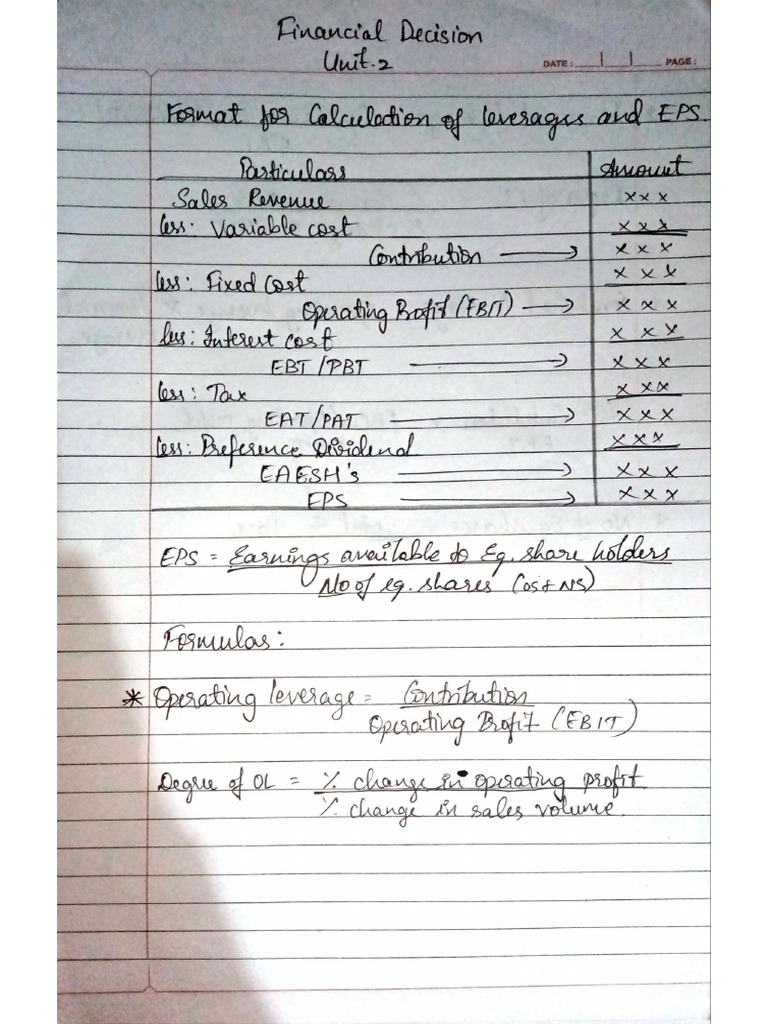 Financial Decision
Unit.2
DATE: PAGE:
Format for Calculation of leverages and EPS.
Particulars Amount
Sales Revenue x x x
less: Variable cost x x x
Contribution → x x x
less: Fixed Cost x x x
Operating Profit (EBIT) → x x x
less: Interest cost x x x
EBT/PBT → x x x
less: Tax x x x
EAT/PAT → x x x
less: Preference Dividend x x x
EAESH's → x x x
EPS → x x x
EPS = Earnings available to Eq. share holders
No of eq. shares (OS+NS)
Formulas:
* Operating leverage = Contribution
Operating Profit (EBIT)
Degree of OL = % change in operating profit
% change in sales volume.